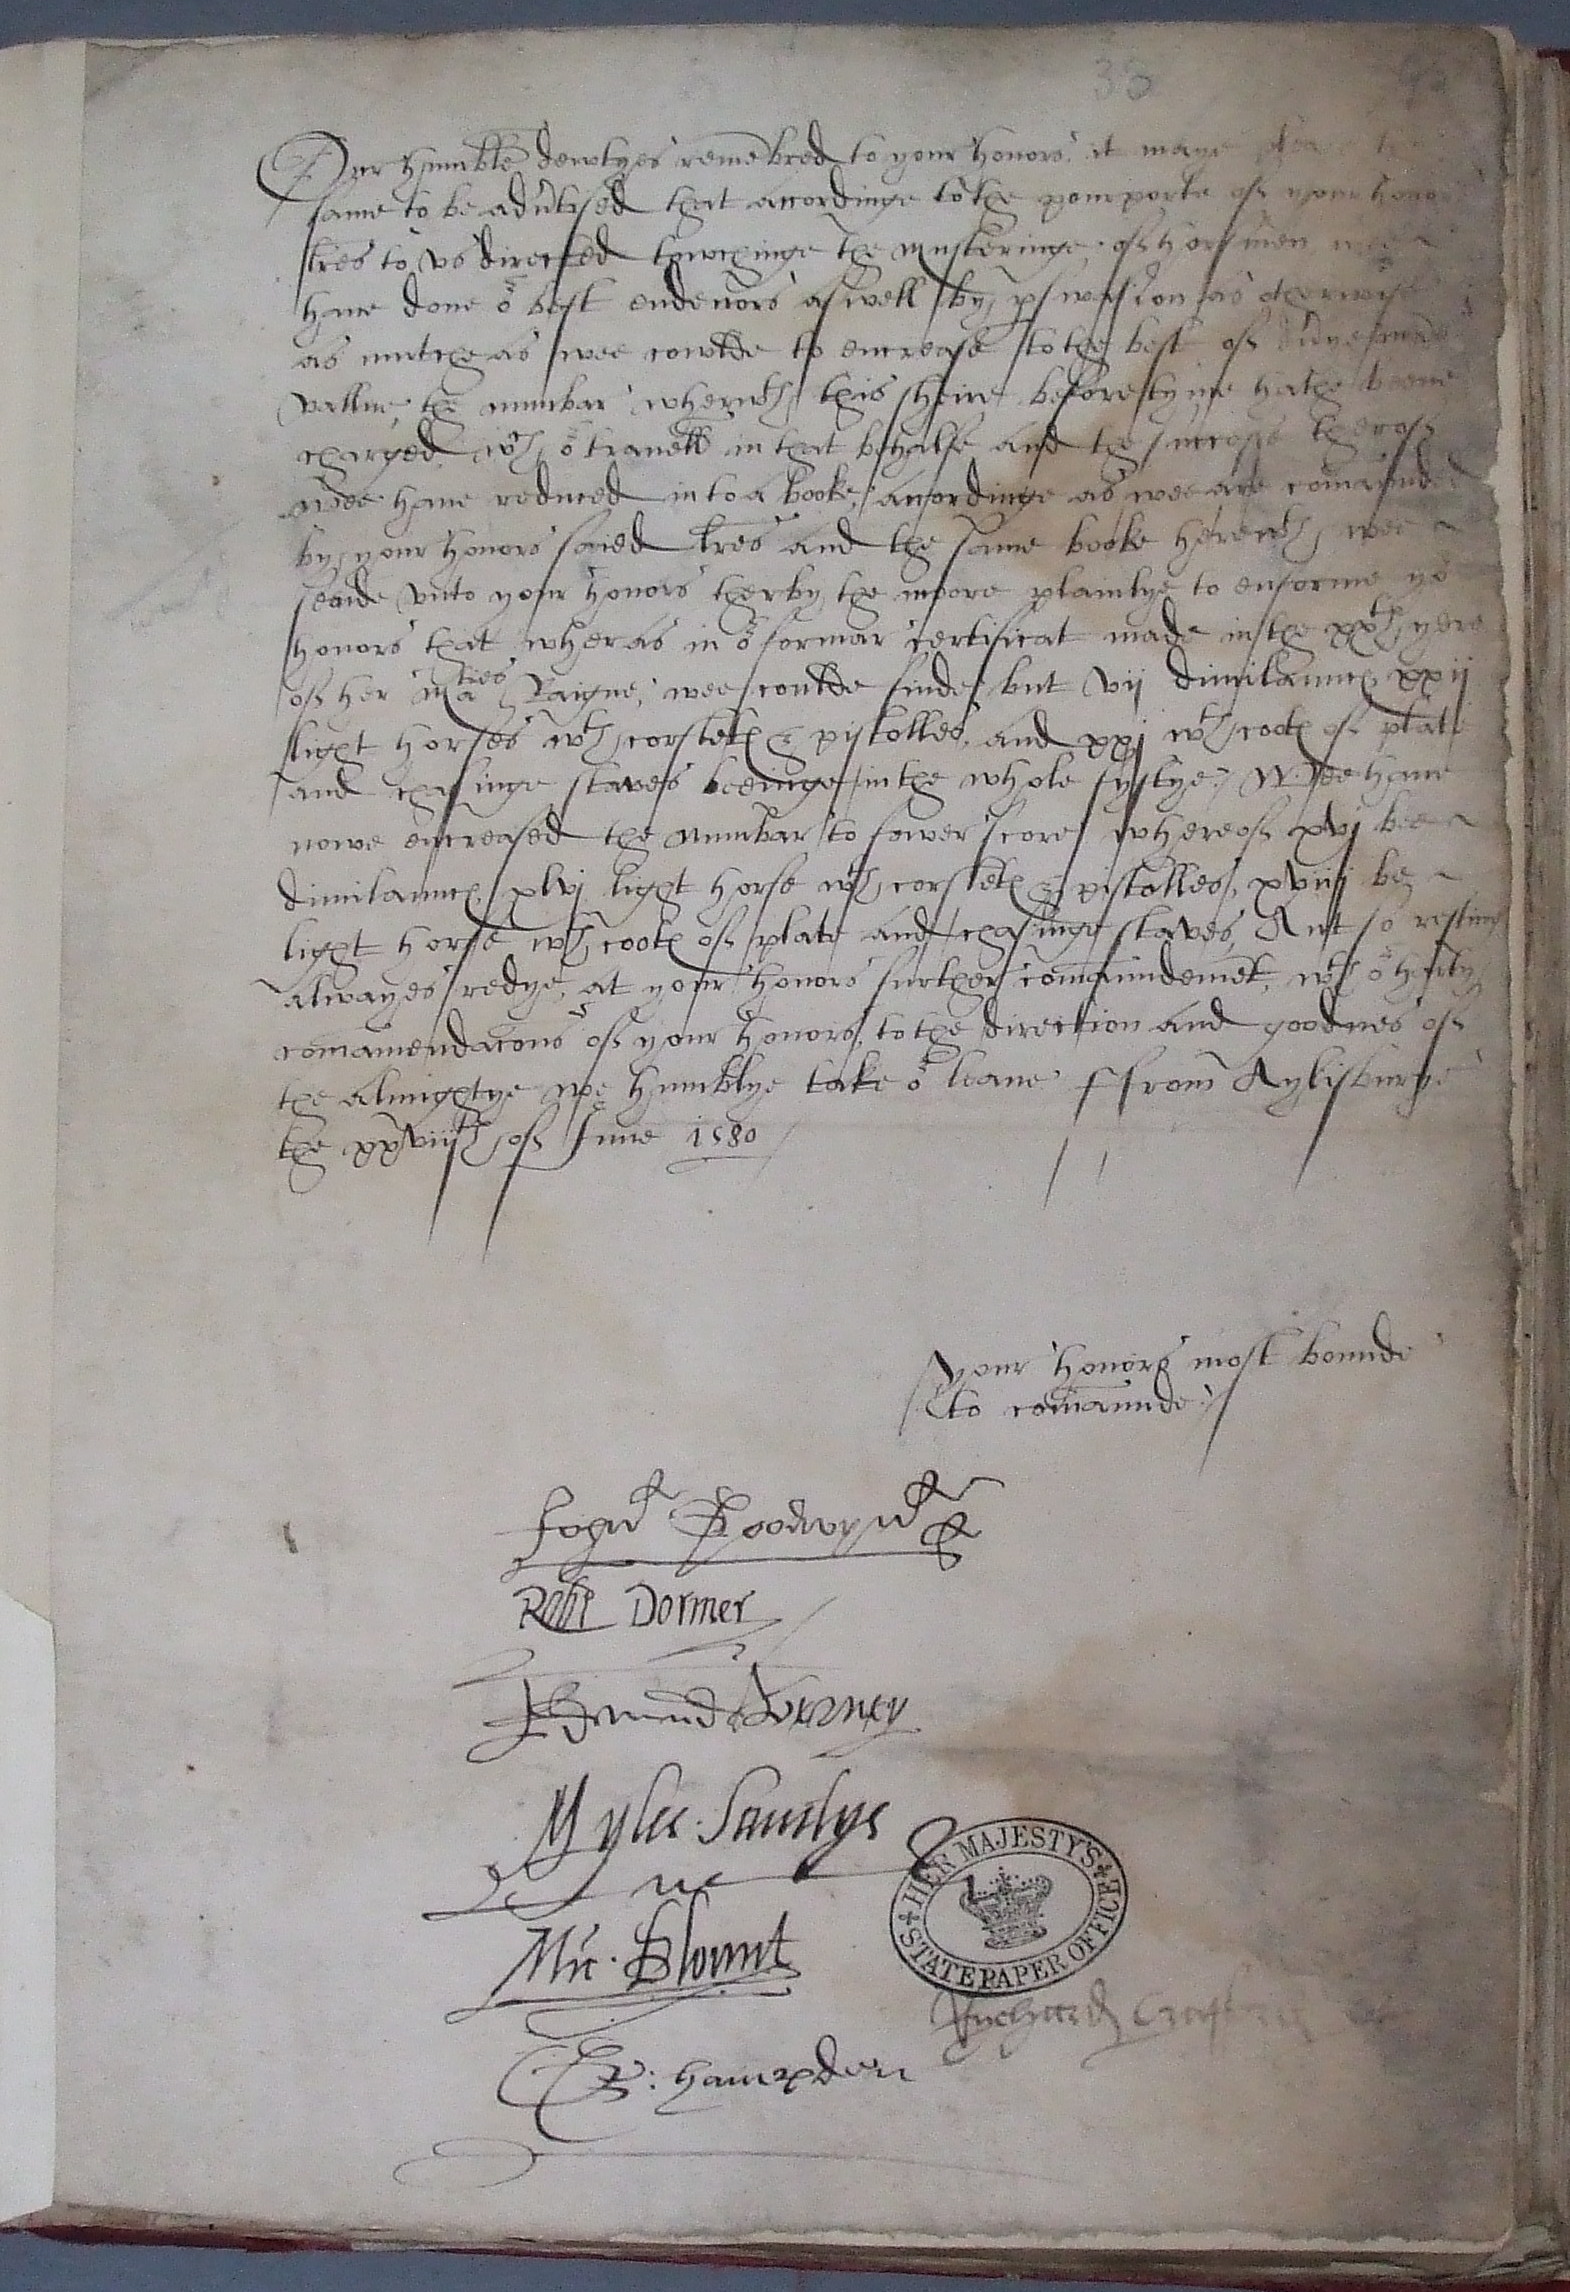 38
Our humble dewtyes remebred to your honors. it maye please the
same to be adv'tised that accordinge to the pourporte of your honors
lres to vs directed towchinge the musteringe of horsmen wee
haue done or best endevors aswell by pswasion as otherwise
as mutche as wee cowlde to encrease to the best of
vallue the numbar wherwth this sheire beforetyme hathe beene
charged, wch or travell in that behalfe and the success therof
wee haue reduced into a booke, accordinge as wee are comaunded
by your honors saied lres and the same booke herewth wee
sende vnto your honors therby the moore plainlye to enforme yor
honors that wheras in or formar certificat made in the xxth yere
of her maties Raigne, wee coulde finde but vij dimilaunces xxij
light horses wth corslets & pistolles, and xxj wth cootes of plate
and chasinge staves beeinge in the whole fyftye. Wee haue
nowe encreased the numbar to fower score whereof xvj bee
dimilaunces, xlvj light horse wth corslets & pistolles, xviij be
light horse wth cootes of plate and chasinge staves, And so restinge
alwayes redye, at your honors further comaundemet, wth or hartye
comamendacons of your honors, to the direction and goodnes of
the almightye we humblye take or leaue ffrom Aylisburye
the xxviijth of June 1580
your honors most bounde
to comaunde
John Goodwyn
Robt Dormer
Edmund Verney
Myles Sandys
Mic. Blount
HER MAJESTY'S STATE PAPER OFFICE
Richard
Gr: hampden